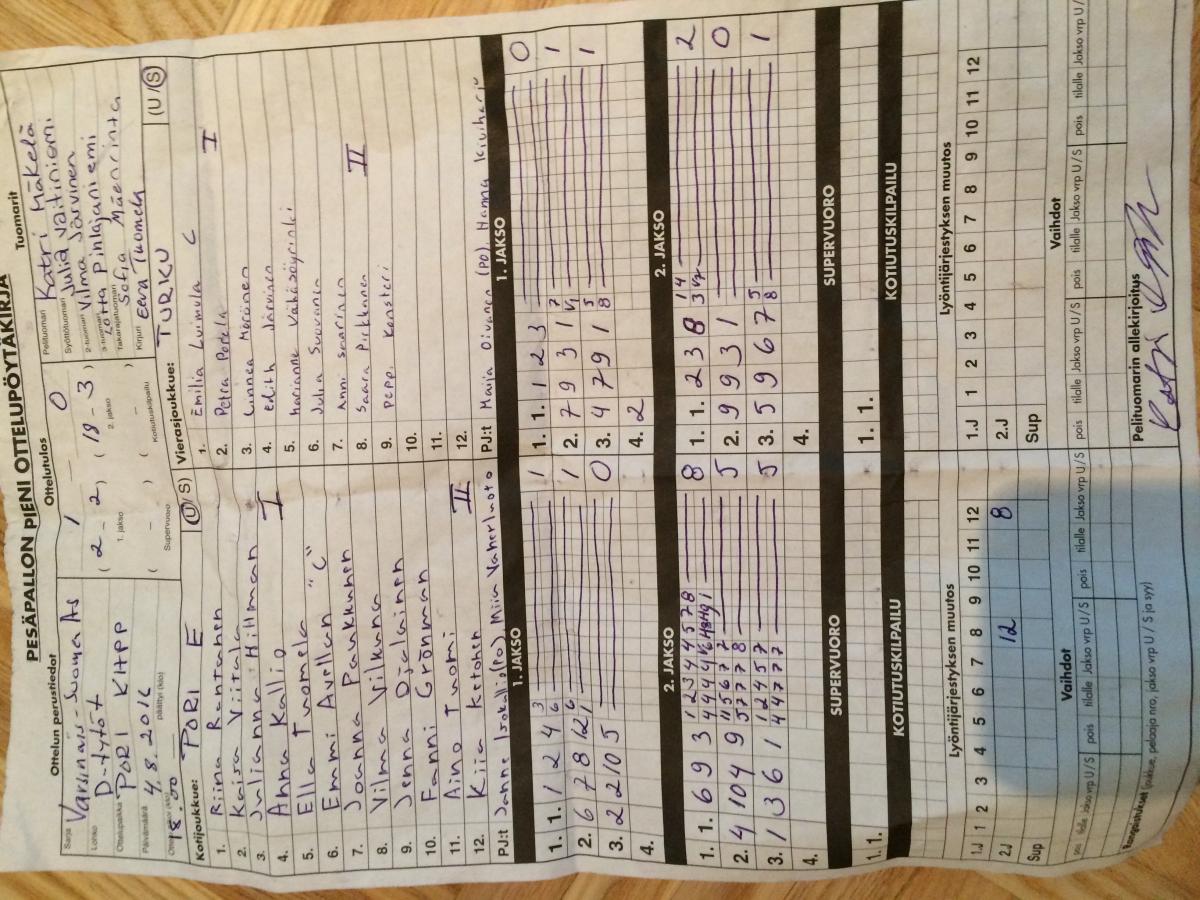 PESÄPALLON PIENI OTTELUPÖYTÄKIRJA
Ottelun perustiedot
Sarja Varsinais-Suomi As
Lohko D-tytöt
Ottelupaikka PORI KHPP
Päivämäärä 4.8.2016
18.00 päättyi (klo)
Ottelutulos
1 0
( 2 - 2 ) ( 18 - 3 )
1. jakso 2. jakso
( - ) ( - )
Supervuoro Kotiutuskilpailu
Tuomarit
Pelituomari Katri Mäkelä
Syöttötuomari Julia Vaitiniemi
2-tuomari Vilma Järvinen
3-tuomari Lotta Pihlajaniemi
Takarajatuomari Sofia Mäenrinta
Kirjuri Eeva Tuomela
Kotijoukkue: PORI E (U/S)
1. Riina Rantanen
2. Kaisa Viitala
3. Julianna Hillman
4. Anna Kallio I
5. Ella Tuomela
6. Emmi Avellan "C"
7. Joanna Paukkunen
8. Vilma Vilkuna
9. Jenna Ojalainen
10. Fanni Grönman
11. Aino Tuomi
12. Kiia Ketonen II
PJ:t Janne Isokallio (PO) Miia Vaherluoto
Vierasjoukkue: TURKU (U/S)
1. Emilia Luimula C
2. Petra Porkla I
3. Linnea Moráinen
4. Edith Järvinen
5. Marianne Vähäsöyrinki
6. Julia Suovanen
7. Anni Saarinen
8. Saara Pirkkanen II
9. Peppi Konsteri
10.
11.
12.
PJ:t Maija Oivanen (PO), Hanna Kiviharju
1. JAKSO
1. 1. 1 2 4 3 1
2. 6 7 8 12 1
3. 2 2 10 5 0
4.
1. JAKSO
1. 1. 1 2 3 0
2. 7 9 3 1 1
3. 4 7 9 1 1
4. 2
2. JAKSO
1. 1. 6 9 3 8
2. 4 10 4 9 5
3. 1 3 6 1 5
4.
2. JAKSO
1. 1. 2 3 8 2
2. 9 9 3 1 0
3. 5 9 6 7 1
4.
SUPERVUORO
1. 1.
SUPERVUORO
1. 1.
KOTIUTUSKILPAILU
KOTIUTUSKILPAILU
Lyöntijärjestyksen muutos
1.J 1 2 3 4 5 6 7 8 9 10 11 12
2.J 12 8
Sup
Lyöntijärjestyksen muutos
1.J 1 2 3 4 5 6 7 8 9 10 11 12
2.J
Sup
Vaihdot
pois tilalle Jakso vrp U/S pois tilalle Jakso vrp U/S pois tilalle Jakso vrp U/S
Vaihdot
pois tilalle Jakso vrp U/S pois tilalle Jakso vrp U/S pois tilalle Jakso vrp U/S
Rangaistukset (joukkue, pelaaja nro, jakso vrp U/S ja syy)
Pelituomarin allekirjoitus